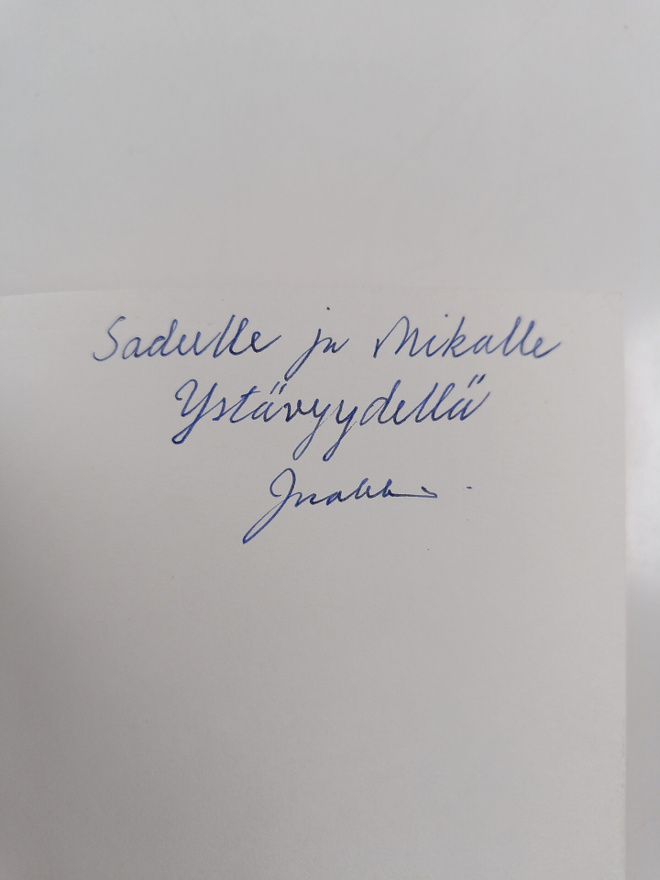 Sadulle ja Mikalle
Ystävyydellä